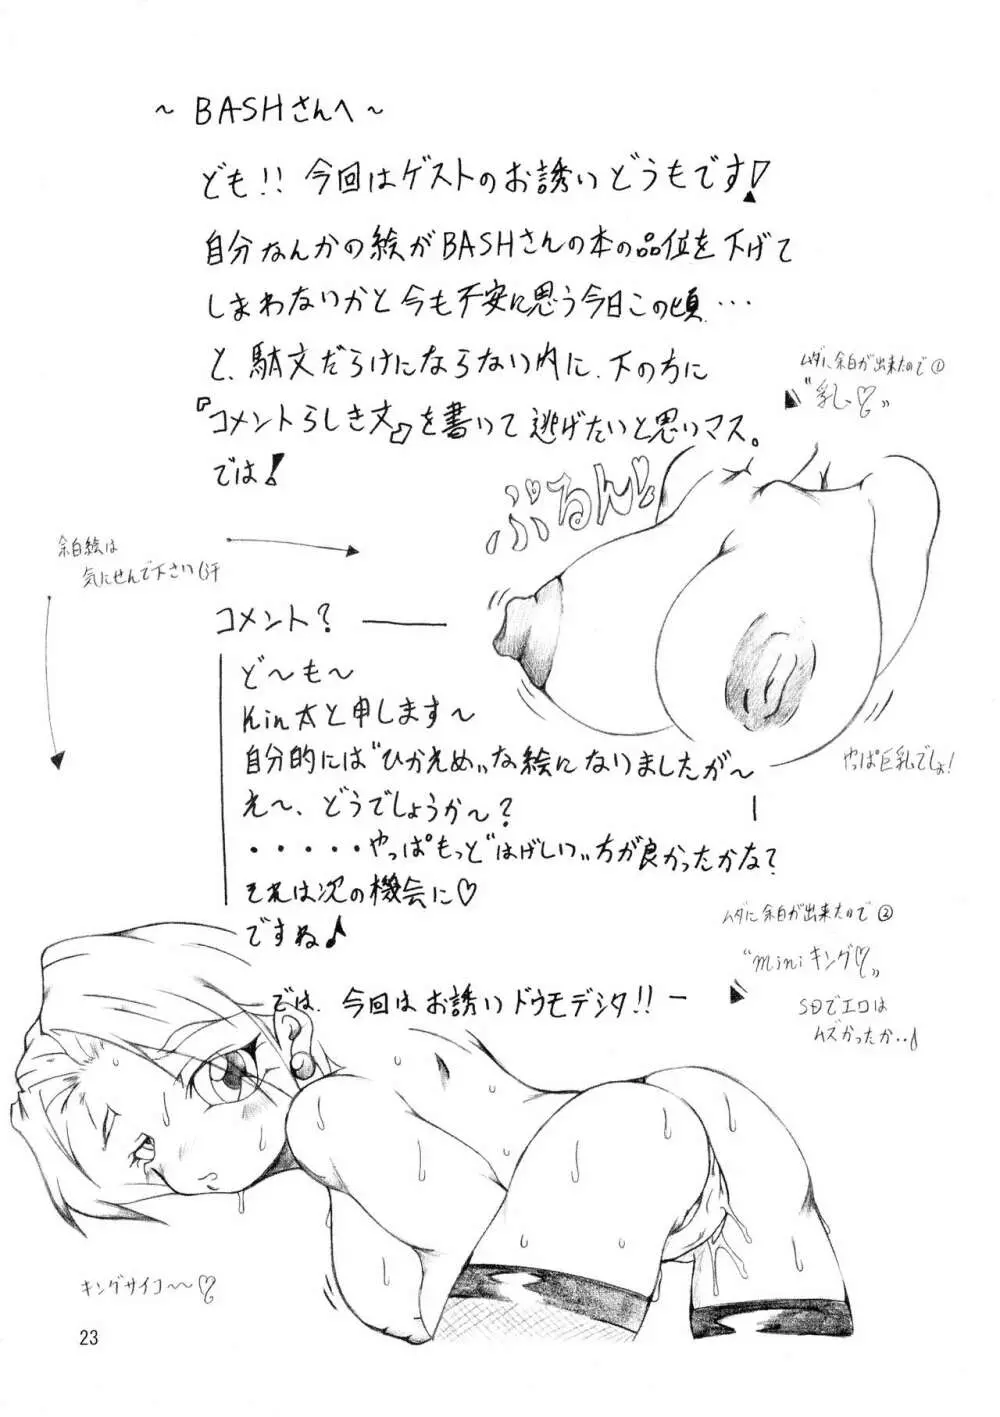 ～ BASHさんへ ～
ども!! 今回はゲストのお誘いどうもです!
自分なんかの絵がBASHさんの本の品位を下げて
しまわないかと今も不安に思う今日この頃…
と、駄文だらけにならない内に、下の方に
『コメントらしき文』を書いて逃げたいと思いマス。
では!
ムダに余白が出来たので①
"乳♡"
ぷるん♡
余白絵は
気にせんで下さい(汗
コメント?
ど～も～
Kin太と申します～
自分的には"ひかえめ"な絵になりましたが～
え～、どうでしょうか～?
・・・・・やっぱもっと"はげしい"方が良かったかな?
それは次の機会に♡
ですね♪
やっぱ巨乳でしょ!
ムダに余白が出来たので②
"miniキング♡"
SDでエロは
ムズかったか‥♪
では、今回はお誘いドウモデシタ!!ー
キングサイコ～～♡
23